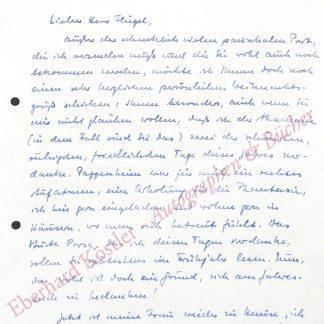 Lieber Herr Flügel,
außer der schrecklich vielen Post,
die ich versenden muß und die Sie wohl auch noch
bekommen werden, möchte ich Ihnen doch noch
einen sehr herzlichen persönlichen Weihnachts-
gruß schicken: Ihnen besonders, auch wenn Sie
mir nicht glauben wollen, daß ich der Akademie
(in dem Fall sind Sie das) zwei der schönsten,
ruhigsten, friedlichsten Tage dieses Jahres ver-
danke. Pappenheim war für mich ein rechtes
Aufatmen, eine Erholung für die Phantasie,
ich bin gern eingeladen und wohne gern in
Häusern, wo man sich betreut fühlt. Das
Stück Prosa, das ich diesen Tagen verdanke,
sollen Sie im Frühjahr lesen. Nun,
das ist doch ein Grund, sich am Jahres-
ende zu bedanken!
Jetzt ist meine Frau wieder zu Hause, ich
Eberhard Köstler - Autographen & Bücher